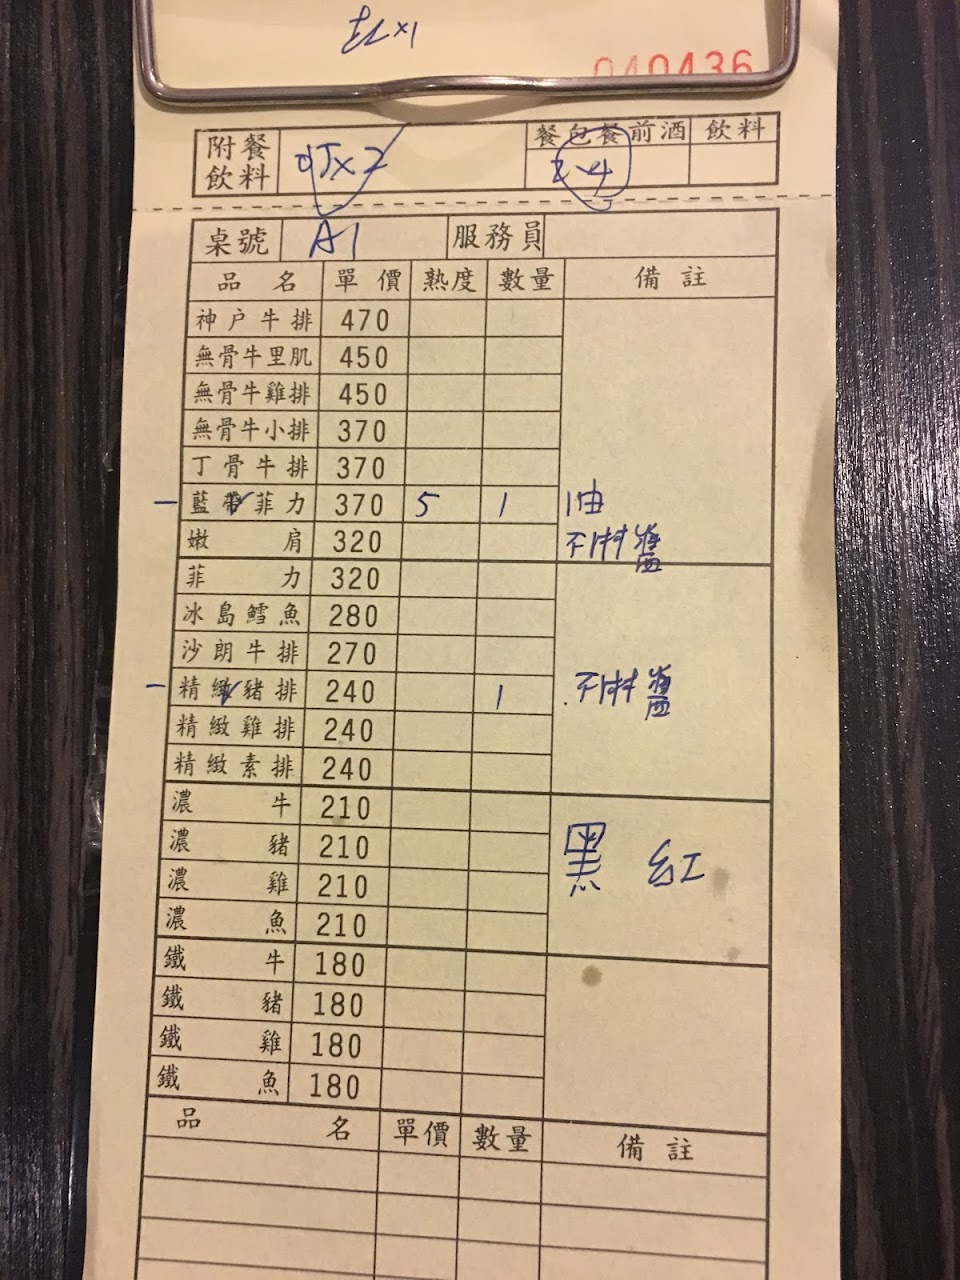 040436
附餐飲料 餐包 餐前酒 飲料
桌號 A1 服務員
品名 單價 熟度 數量 備註
神戶牛排 470
無骨牛里肌 450
無骨牛雞排 450
無骨牛小排 370
丁骨牛排 370
藍帶菲力 370 5 1
嫩肩 320 不淋醬
菲力 320
冰島鱈魚 280
沙朗牛排 270
精緻豬排 240 1 不淋醬
精緻雞排 240
精緻素排 240
濃牛 210
濃豬 210 黑 紅
濃雞 210
濃魚 210
鐵牛 180
鐵豬 180
鐵雞 180
鐵魚 180
品名 單價 數量 備註